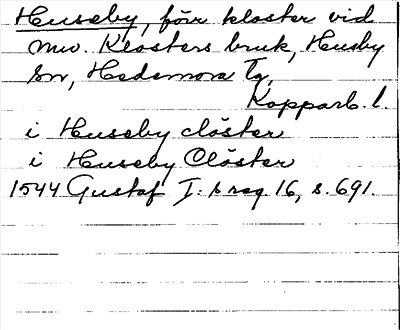 Huseby, förr kloster vid
nuv. Klosters bruk, Husby
sn, Hedemora Tg,
Kopparb. l.
i Huseby clöster
i Huseby Clöster
1544 Gustaf I: s reg 16, s. 691.